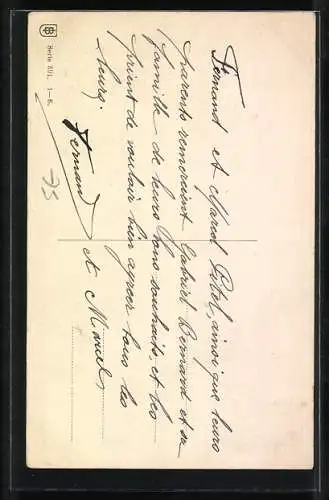 Fernand et Marcel Pitel, ainsi que leurs
parents remercient Gabriel Bernard et sa
famille de leurs bons souhaits, et les
prient de vouloir bien agréer tous les
leurs.
Fernand et Marcel
Serie 201. 1-6.
75